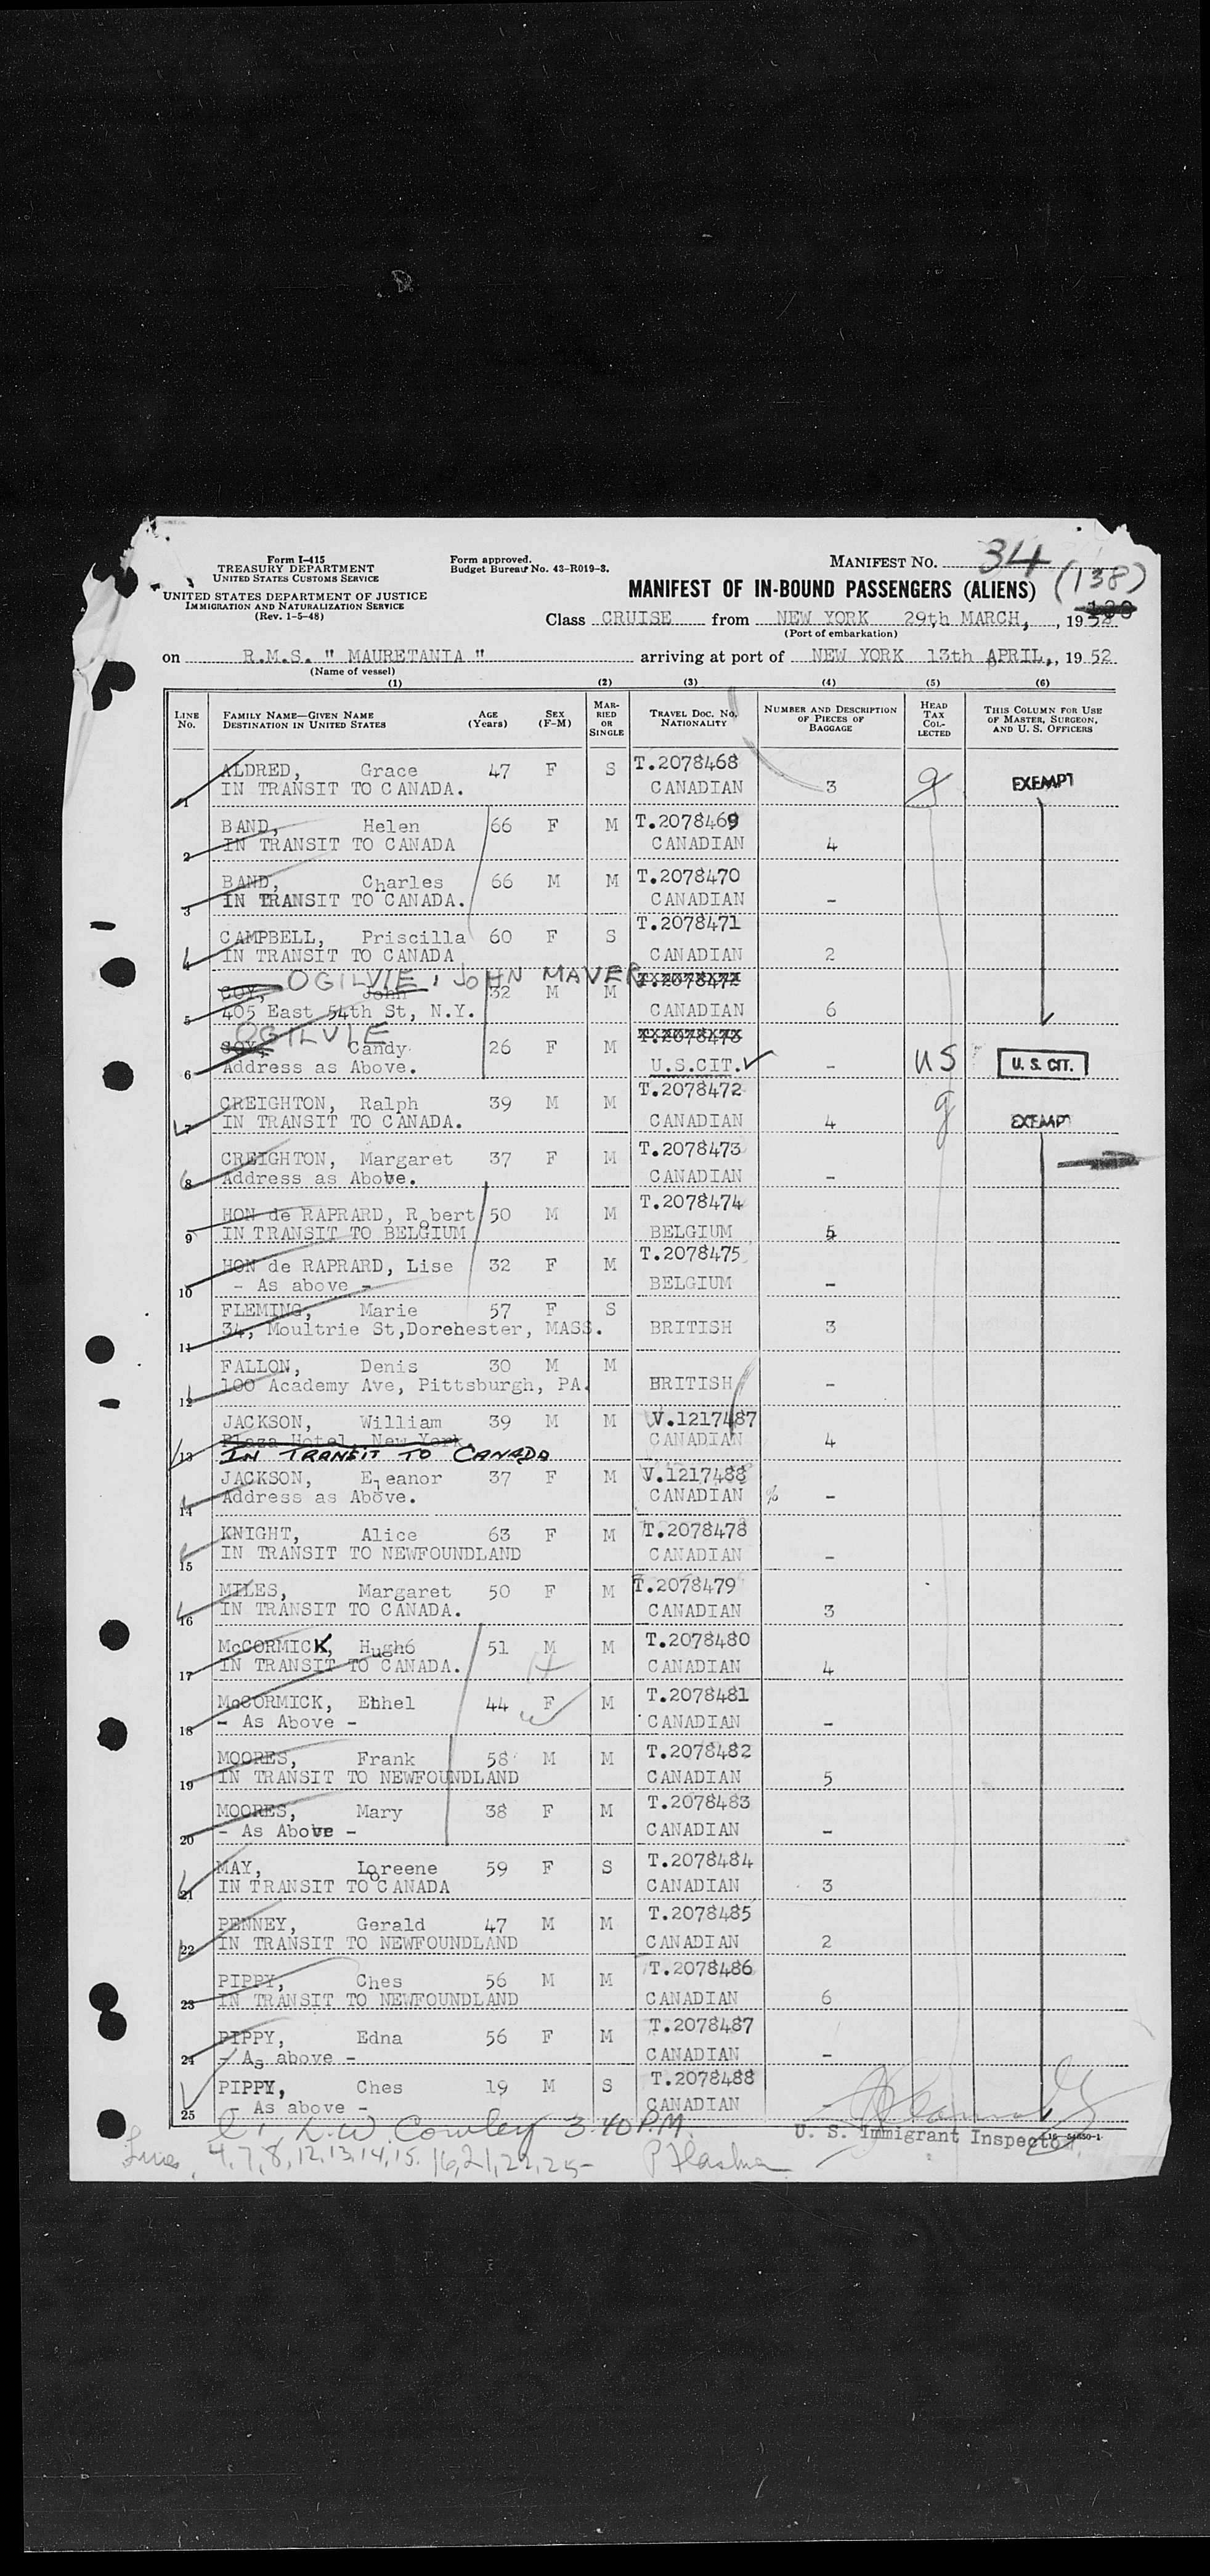 Form I-415
TREASURY DEPARTMENT
UNITED STATES CUSTOMS SERVICE
UNITED STATES DEPARTMENT OF JUSTICE
IMMIGRATION AND NATURALIZATION SERVICE
(Rev. 1-5-48)
Form approved.
Budget Bureau No. 43-R019-3.
MANIFEST NO. 34
(138)
MANIFEST OF IN-BOUND PASSENGERS (ALIENS)
Class CRUISE from NEW YORK 29th MARCH, , 1952
(Port of embarkation)
on R.M.S. " MAURETANIA " arriving at port of NEW YORK 13th APRIL,, 1952
(Name of vessel)
(1) (2) (3) (4) (5) (6)
LINE No. FAMILY NAME—GIVEN NAME DESTINATION IN UNITED STATES AGE (Years) SEX (F-M) MARRIED OR SINGLE TRAVEL DOC. NO. NATIONALITY NUMBER AND DESCRIPTION OF PIECES OF BAGGAGE HEAD TAX COLLECTED THIS COLUMN FOR USE OF MASTER, SURGEON, AND U. S. OFFICERS
1 ALDRED, Grace 47 F S T.2078468
IN TRANSIT TO CANADA. CANADIAN 3 EXEMPT
2 BAND, Helen 66 F M T.2078469
IN TRANSIT TO CANADA CANADIAN 4
3 BAND, Charles 66 M M T.2078470
IN TRANSIT TO CANADA. CANADIAN -
4 CAMPBELL, Priscilla 60 F S T.2078471
IN TRANSIT TO CANADA CANADIAN 2
OGILVIE, JOHN MAVER
5 COY, John 32 M M T.2078472
405 East 54th St, N.Y. CANADIAN 6
OGILVIE
6 COY, Candy 26 F M T.2078473
Address as Above. U.S.CIT. - US U. S. CIT.
7 CREIGHTON, Ralph 39 M M T.2078472
IN TRANSIT TO CANADA. CANADIAN 4 EXEMPT
8 CREIGHTON, Margaret 37 F M T.2078473
Address as Above. CANADIAN -
9 HON de RAPRARD, Robert 50 M M T.2078474
IN TRANSIT TO BELGIUM BELGIUM 5
10 HON de RAPRARD, Lise 32 F M T.2078475
- As above - BELGIUM -
11 FLEMING, Marie 57 F S
34, Moultrie St,Dorchester, MASS. BRITISH 3
12 FALLON, Denis 30 M M
100 Academy Ave, Pittsburgh, PA. BRITISH -
13 JACKSON, William 39 M M V.1217487
Plaza Hotel, New York CANADIAN 4
IN TRANSIT TO CANADA
14 JACKSON, Eleanor 37 F M V.1217488
Address as Above. CANADIAN % -
15 KNIGHT, Alice 63 F M T.2078478
IN TRANSIT TO NEWFOUNDLAND CANADIAN -
16 MILES, Margaret 50 F M T.2078479
IN TRANSIT TO CANADA. CANADIAN 3
17 McCORMICK, Hugh6 51 M M T.2078480
IN TRANSIT TO CANADA. CANADIAN 4
18 McCORMICK, Ethel 44 F M T.2078481
- As Above - CANADIAN -
19 MOORES, Frank 58 M M T.2078482
IN TRANSIT TO NEWFOUNDLAND CANADIAN 5
20 MOORES, Mary 38 F M T.2078483
- As Above - CANADIAN -
21 MAY, Loreene 59 F S T.2078484
IN TRANSIT TO CANADA CANADIAN 3
22 PENNEY, Gerald 47 M M T.2078485
IN TRANSIT TO NEWFOUNDLAND CANADIAN 2
23 PIPPY, Ches 56 M M T.2078486
IN TRANSIT TO NEWFOUNDLAND CANADIAN 6
24 PIPPY, Edna 56 F M T.2078487
- As above - CANADIAN -
25 PIPPY, Ches 19 M S T.2078488
- As above - CANADIAN -
L.W. Cowley 3.40 P.M.
U. S. Immigrant Inspector
Lines 4,7,8,12,13,14,15,16,21,22,25-